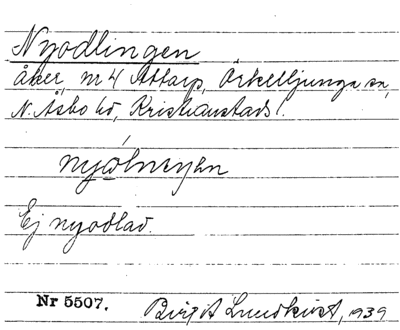 Nyodlingen
åker, nr 4 Attarp, Örkelljunga sn,
N. Åsbo hd, Kristianstads l.
Ej nyodlad.
Nr 5507.
Birgit Lundkvist, 1939